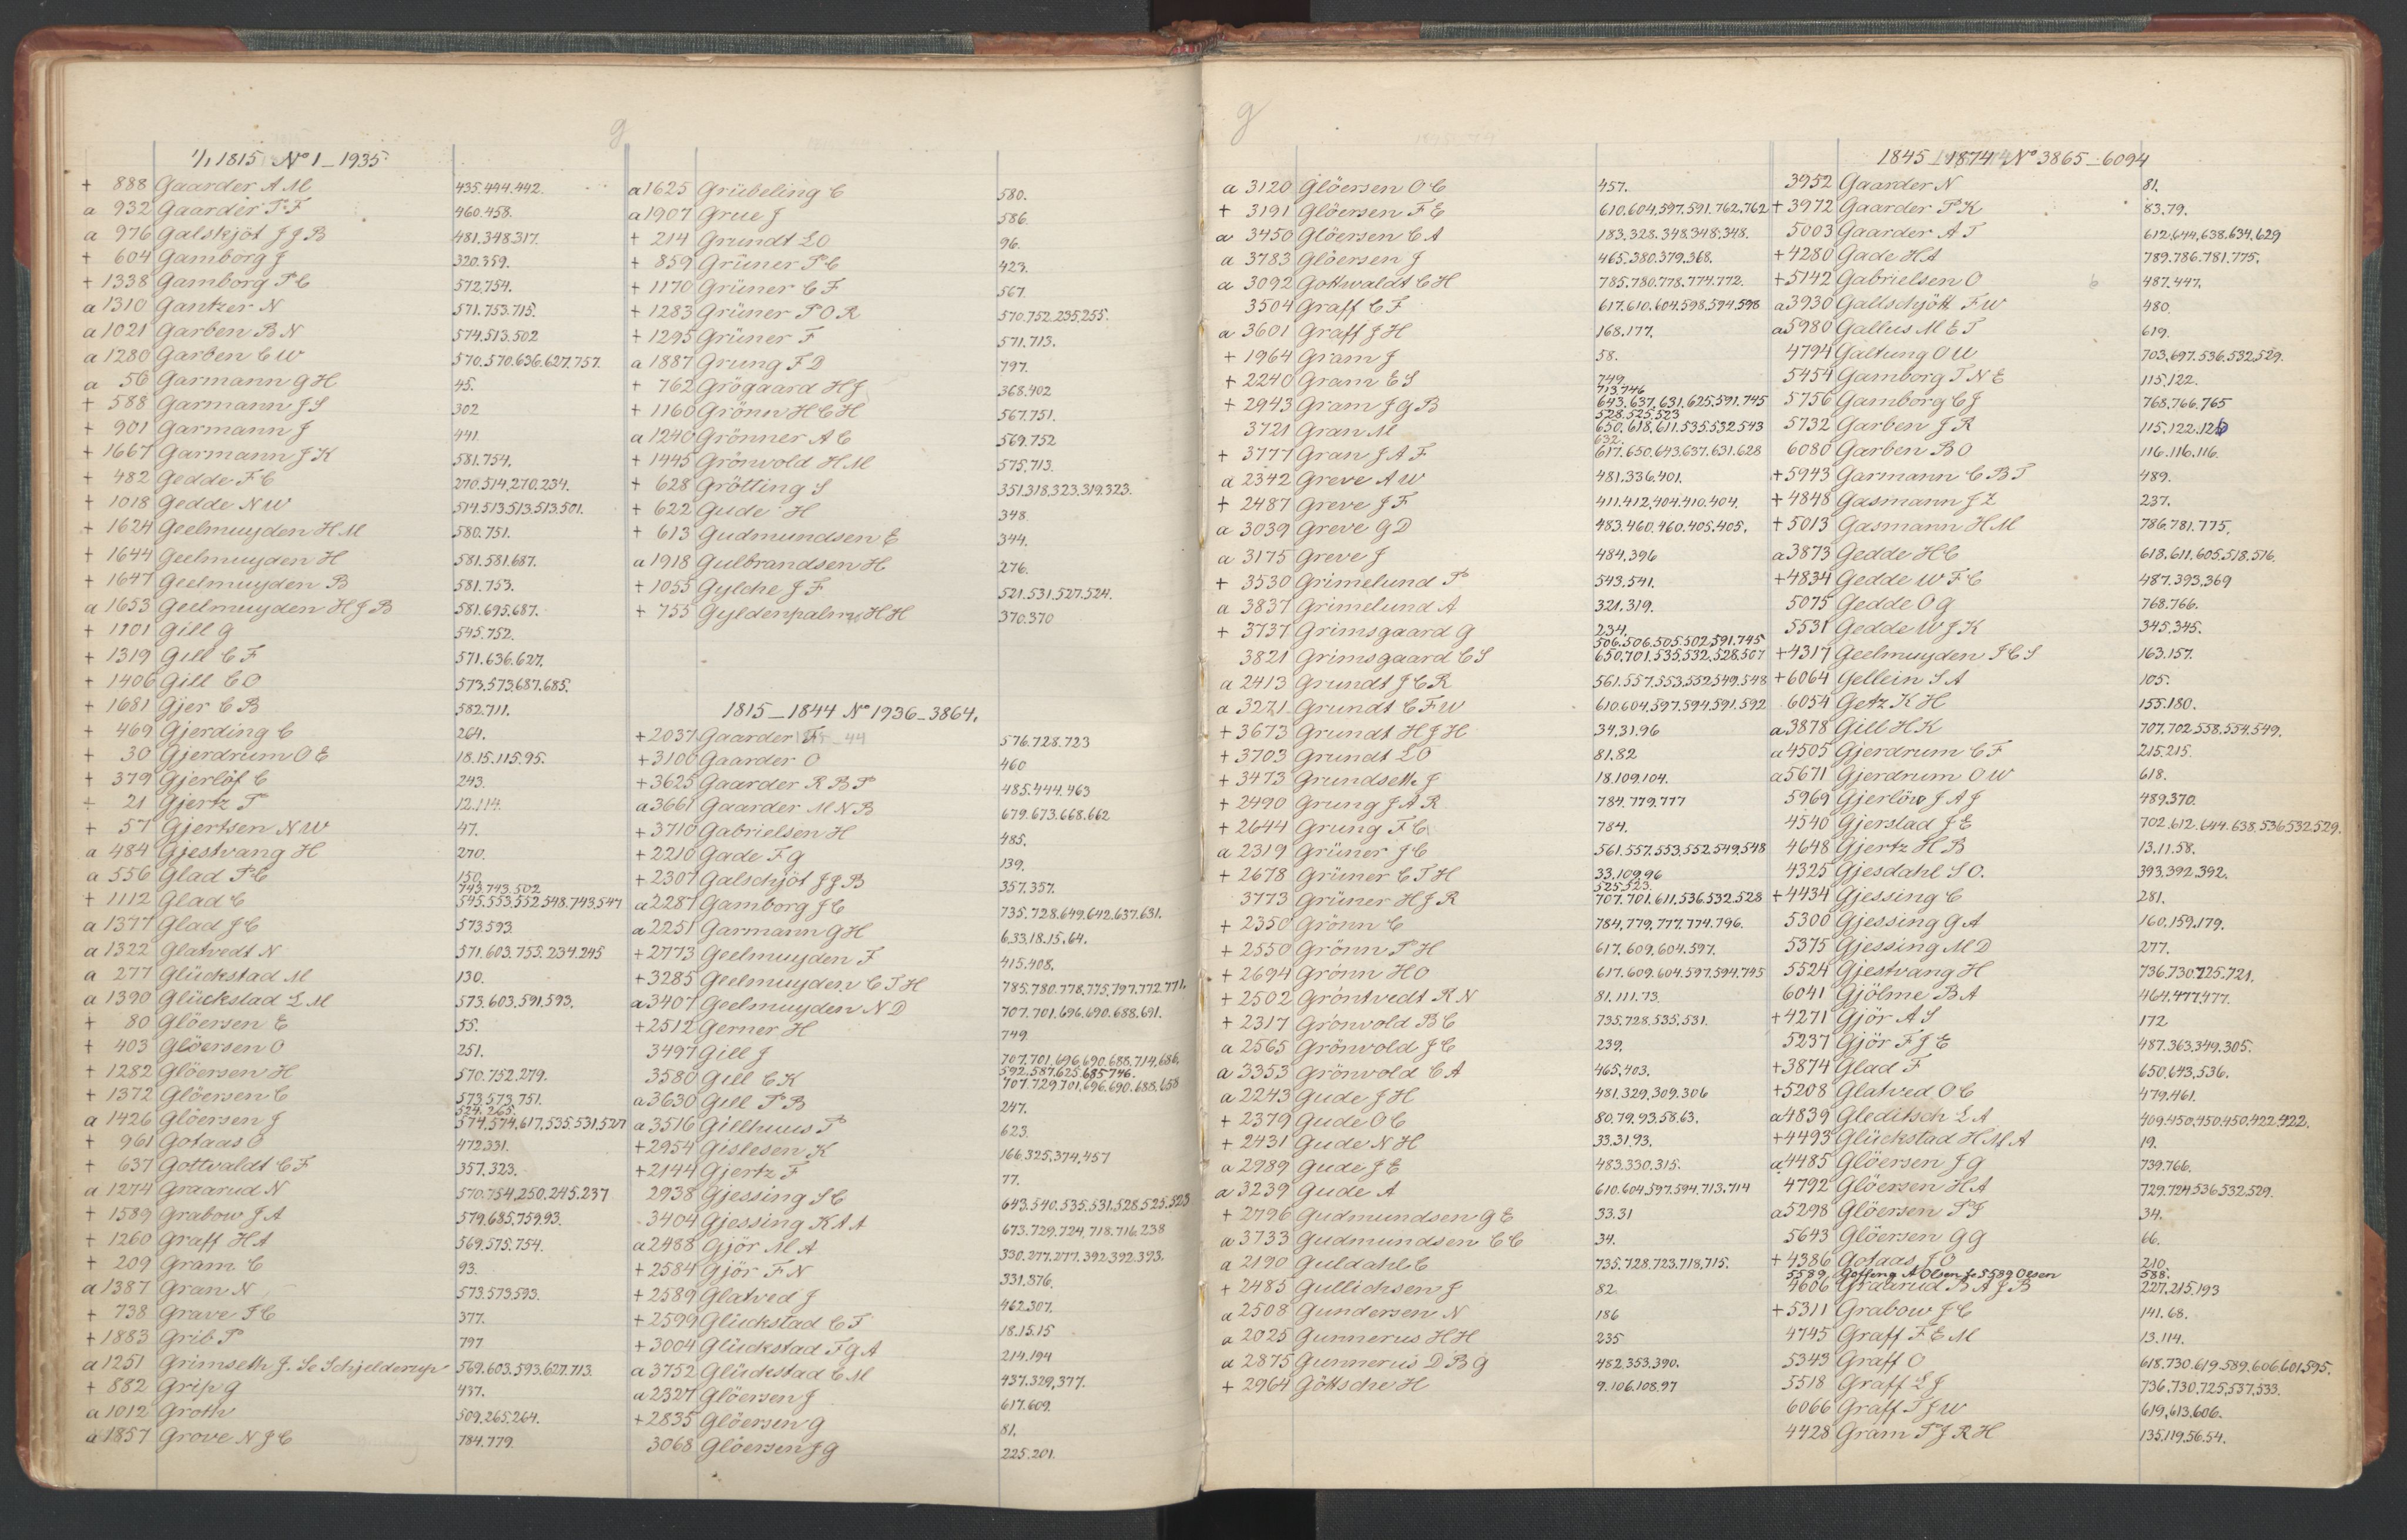 g
1/1 1815 No 1_1935
+ 888 Gaarder A M 435.444.442.
a 932 Gaarder P F 460.458.
a 976 Galskjöt J J B 481.348.317.
+ 604 Gamborg J 320.359.
+ 1338 Gamborg P C 572.754.
a 1310 Gantzer N 571.753.715.
a 1021 Garben B N 574.513.502
a 1280 Garben C W 570.570.636.627.757.
a 56 Garmann G H 45.
+ 588 Garmann J S 302
+ 901 Garmann J 441.
+ 1667 Garmann J K 581.754.
+ 482 Gedde F C 270.514.270.234.
+ 1018 Gedde N W 514.513.513.513.501.
+ 1624 Geelmuyden H M 580.751.
+ 1644 Geelmuyden H 581.581.687.
+ 1647 Geelmuyden B 581.753.
a 1653 Geelmuyden H J B 581.695.687.
+ 1101 Gill G 545.752.
+ 1319 Gill C F 571.636.627.
+ 1406 Gill C O 573.573.687.685.
+ 1681 Gjer C B 582.711.
+ 469 Gjerding C 264.
+ 30 Gjerdrum O E 18.15.115.95.
+ 379 Gjerlöf C 243.
+ 21 Gjertz P 12.114.
+ 57 Gjertsen N W 47.
a 484 Gjestvang H 270.
a 556 Glad P C 150.
743.743.502
+ 1112 Glad C 545.553.552.548.743.547
a 1377 Glad J C 573.593.
a 1322 Glatvedt N 571.603.755.234.245
a 277 Glückstad M 130.
a 1390 Glückstad L M 573.603.591.593.
+ 80 Glöersen E 55.
+ 403 Glöersen O 251.
+ 1282 Glöersen H 570.752.279.
+ 1372 Glöersen C 573.573.751.
524.265.
a 1426 Glöersen J 574.574.617.535.531.527
+ 961 Gotaas O 472.331.
+ 637 Gottvaldt C F 357.323.
a 1274 Graarud N 570.754.250.245.237
+ 1589 Grabow J A 579.685.759.93.
+ 1260 Graff H A 569.575.754.
+ 209 Gram C 93.
a 1387 Gran N 573.573.593.
+ 738 Grave J C 377.
+ 1883 Grib P 797
a 1251 Grimseth J. Se Schjelderup 569.603.593.627.713.
+ 882 Grip G 437.
a 1012 Groth 509.265.264.
a 1857 Grove N J C 784.779.
a 1625 Grübeling C 580.
a 1907 Grue J 586.
+ 214 Grundt L O 96.
+ 859 Grüner P C 423.
+ 1170 Grüner C F 567.
+ 1283 Grüner P O R 570.752.235.255.
+ 1295 Grüner F 571.713.
a 1887 Grung F D 797.
+ 762 Grögaard H J 368.402
+ 1160 Grönn H C H 567.751.
a 1240 Grönner A C 569.752
+ 1445 Grönvold H M 575.713.
+ 628 Grötting S 351.318.323.319.323.
+ 622 Gude H 348.
+ 613 Gudmundsen E 344.
a 1918 Gulbrandsen H 276.
+ 1055 Gylche J F 521.531.527.524.
+ 755 Gyldenpalm H H 370.370
1815_1844 No 1936_3864.
+ 2037 Gaarder F 576.728.723
+ 3100 Gaarder O 460
+ 3625 Gaarder R B P 485.444.463
a 3661 Gaarder M N B 679.673.668.662
+ 3710 Gabrielsen H 485.
+ 2210 Gade F G 139.
+ 2307 Galschjöt J J B 357.357.
a 2287 Gamborg J C 735.728.649.642.637.631.
a 2251 Garmann G H 6.33.18.15.64.
+ 2773 Geelmuyden F 415.408.
+ 3285 Geelmuyden C T H 785.780.778.775.797.772.771.
a 3407 Geelmuyden N D 707.701.696.690.688.691.
+ 2512 Gerner H 749.
3497 Gill J 707.701.696.690.688.714.686.
592.587.625.685.746.
3580 Gill C K 707.729.701.696.690.688.658
a 3630 Gill P B 247.
a 3516 Gillhuus P 623.
+ 2954 Gislesen K 166.325.374.457
+ 2144 Gjertz F 77.
2938 Gjessing S C 643.540.535.531.528.525.523
3404 Gjessing K A A 673.729.724.718.716.238
a 2488 Gjör M A 330.277.277.392.392.393.
+ 2584 Gjör F N 331.376.
+ 2589 Glatved J 462.307.
+ 2599 Glückstad C F 18.15.15
+ 3004 Glückstad F G A 214.194
a 3752 Glückstad C M 437.329.377.
a 2327 Glöersen J 617.609.
+ 2835 Glöersen G 81.
3068 Glöersen J G 225.201.
g
a 3120 Glöersen O C 457.
+ 3191 Glöersen F E 610.604.597.591.762.762
a 3450 Glöersen C A 183.328.348.348.348.
a 3783 Glöersen J 465.380.379.368.
a 3092 Gottwaldt C H 785.780.778.774.772.
3504 Graff C F 617.610.604.598.594.598
a 3601 Graff J H 168.177.
+ 1964 Gram J 58.
+ 2240 Gram E S 749.
713.746
+ 2943 Gram J G B 643.637.631.625.591.745
528.525.523
3721 Gran M 650.618.611.535.532.543
632.
+ 3777 Gran J A F 617.650.643.637.631.628
a 2342 Greve A W 481.336.401.
+ 2487 Greve J F 411.412.404.410.404.
a 3039 Greve G D 483.460.460.405.405.
a 3175 Greve J 484.396
+ 3530 Grimelund P 543.541.
a 3837 Grimelund A 321.319.
+ 3737 Grimsgaard G 234.
506.506.505.502.591.745
3821 Grimsgaard C S 650.701.535.532.528.507
a 2413 Grundt J C R 561.557.553.552.549.548
a 3271 Grundt C F W 610.604.597.594.591.592
+ 3673 Grundt H J H 34.31.96
+ 3703 Grundt L O 81.82
+ 3473 Grundseth J 18.109.104.
+ 2490 Grung J A R 784.779.777
+ 2644 Grung F C 784.
a 2319 Grüner J C 561.557.553.552.549.548
+ 2678 Grüner C T H 33.109.96
525.523.
3773 Grüner H J R 707.701.611.536.532.528
+ 2350 Grönn C 784.779.777.774.796.
+ 2550 Grönn P H 617.609.604.597.
+ 2694 Grönn H O 617.609.604.597.594.745
+ 2502 Gröntvedt R N 81.111.73.
+ 2317 Grönvold B C 735.728.535.531.
a 2565 Grönvold J C 239.
a 3353 Grönvold C A 465.403.
a 2243 Gude J H 481.329.309.306
+ 2379 Gude O C 80.79.93.58.63.
+ 2431 Gude N H 33.31.93.
a 2989 Gude J E 483.330.315.
a 3239 Gude A 610.604.597.594.713.714
+ 2796 Gudmundsen G E 33.31
a 3733 Gudmundsen C C 34.
a 2190 Guldahl C 735.728.723.718.715.
+ 2485 Gullichsen J 82.
a 2508 Gundersen N 186
a 2025 Gunnerus H H 235
a 2875 Gunnerus D B G 482.353.390.
+ 2964 Göttsche H 9.106.108.97
1845_1874 No 3865_6094
3952 Gaarder N 81.
+ 3972 Gaarder P K 83.79.
5003 Gaarder A T 612.644.638.634.629
+ 4280 Gade H A 789.786.781.775.
+ 5142 Gabrielsen O 487.447.
a 3930 Gallschjött F W 480.
a 5980 Gallus M E T 619.
4794 Galtung O U 703.697.536.532.529.
5454 Gamborg T N E 115.122.
5756 Gamborg C J 768.766.765
5732 Garben J R 115.122.126
6080 Garben B O 116.116.116.
+ 5943 Garmann C B T 489.
+ 4848 Gasmann J Z 237.
+ 5013 Gasmann H M 786.781.775.
a 3873 Gedde H C 618.611.605.518.516.
+ 4834 Gedde W F C 487.393.369
5075 Gedde O G 768.766.
5531 Gedde W J K 345.345.
+ 4317 Geelmuyden J C S 163.157.
+ 6064 Gellein S A 105.
6054 Getz K H 155.180.
a 3878 Gill H K 707.702.558.554.549.
a 4505 Gjerdrum C F 215.215.
a 5671 Gjerdrum O W 618.
5969 Gjerlöw J A J 489.370.
4540 Gjerstad J E 702.612.644.638.536.532.529.
4648 Gjertz H B 13.11.58.
4325 Gjesdahl S O. 393.392.392.
+ 4434 Gjessing C 281.
5300 Gjessing G A 160.159.179.
5375 Gjessing M D 277.
5524 Gjestvang H 736.730.725.721.
6041 Gjölme B A 464.477.477.
+ 4271 Gjör A S 172
5237 Gjör F J E 487.363.349.305.
+ 3874 Glad F 650.643.536.
+ 5208 Glatved O C 479.461.
a 4839 Gleditsch L A 409.450.450.450.422.422.
+ 4493 Glückstad H M A 19.
a 4485 Glöersen J G 739.766.
4792 Glöersen H A 729.724.536.532.529.
a 5298 Glöersen P J 34.
5643 Glöersen G G 66.
+ 4386 Gotaas J O 210.
5589 Göffeng A Olsen se 5589 Olsen 588.
4606 Graarud B A J B 227.215.193
+ 5311 Grabow J C 141.68.
4745 Graff F E M 13.114.
5343 Graff O 618.730.619.589.606.601.595.
5518 Graff L J 736.730.725.537.533.
6066 Graff T J W 619.613.606.
4428 Gram P J R H 135.119.56.54.